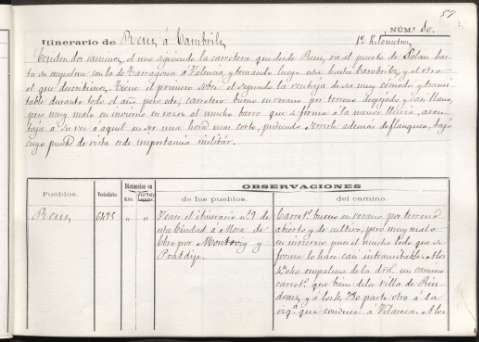 57
NÚM.º 80.
Itinerario de Reus á Cambrils
12 Kilometros
Existen dos caminos, el uno siguiendo la carretera que desde Reus va al puerto de Salou has-
ta su empalme con la de Tarragona á Valencia, y tomando luego esta hasta Cambrils y el otro
el que describimos. Tiene el primero sobre el segundo la ventaja de ser muy cómodo y transi-
table durante todo el año, pero este, carretero, bueno en verano por terreno despejado y casi llano,
pero muy malo en invierno en razon al mucho barro que se forma á la menor lluvia, aven-
taja á su vez á aquel en ser una hora mas corto, pudiendo además bajo
cuyo punto de vista es de importancia militar.
Pueblos.
Vecindario
Distancias en
Km.
Horas
OBSERVACIONES
de los pueblos.
del camino.
Reus
"
"
Vease el itinerario nº 9 de
esta Ciudad á Mora de
Ebro por Montroig y
Pratdip.
Carretº bueno en verano por terreno
abierto y de cultivo, pero muy malo
en invierno pues el mucho lodo que se
forma lo hace casi intransitable. A los
empalma de la dra. un camino
carretº que viene de la villa de Riu-
doms, y á los 730 parte otro á la
izqª que conduce á Vilaseca. A los